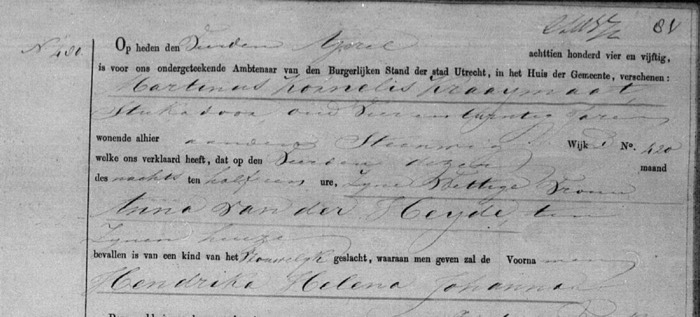 84
No 480.
Op heden den Vierden April
achttien honderd vier en vijftig,
is voor ons ondergeteekende Ambtenaar van den Burgerlijken Stand der stad Utrecht, in het Huis der Gemeente, verschenen:
Martinus Kornelis Kraaymaat,
Stukadoor oud Vier en twintig Jaren
wonende alhier aan den Steenweg Wijk No. 420
welke ons verklaard heeft, dat op den Vierden dezer maand
des nachts ten half een ure, zyne Wettige Vrouw
Anna van der Heyde, ten
zynen huize
bevallen is van een kind van het Vrouwelyk geslacht, waaraan men geven zal de Voorna men
Hendrika Helena Johanna